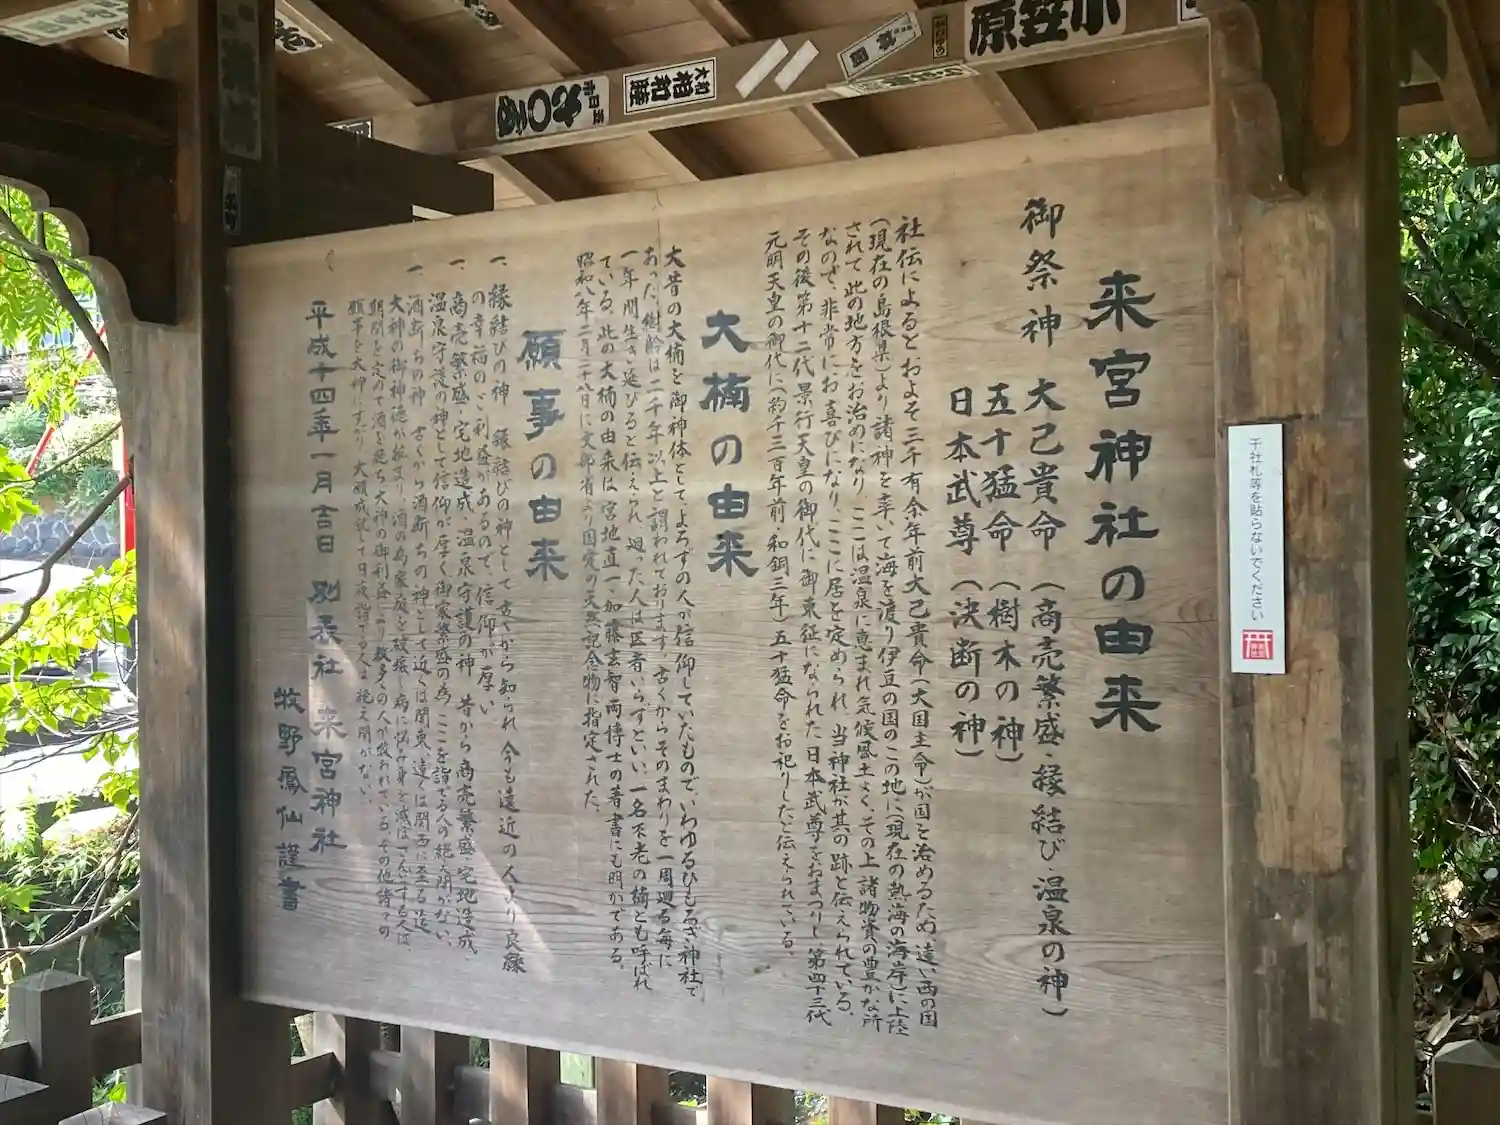 来宮神社の由来
御祭神 大己貴命 (商売繁盛 縁結び 温泉の神)
五十猛命 (樹木の神)
日本武尊 (決断の神)
社伝によるとおよそ三千有余年前大己貴命(大国主命)が国を治めるため、遠い西の国
(現在の島根県)より諸神を率いて海を渡り伊豆の国のこの地に(現在の熱海の海岸)に上陸
されて此の地方をお治めになり、ここは温泉に恵まれ気候風土よく、その上諸物資の豊かな所
なので、非常にお喜びになり、ここに居を定められ、当神社が其の跡と伝えられている。
その後第十二代景行天皇の御代に御東征になられた日本武尊をおまつりし 第四十三代
元明天皇の御代に(約千三百年前 和銅三年)五十猛命をお祀りしたと伝えられている。
大楠の由来
大昔の大楠を御神体としてよろずの人が信仰していたもので、いわゆるひもろぎ神社で
あった。樹齢は二千年以上と謂われております。古くからそのまわりを一周廻る毎に
一年間生き延びると伝えられ、廻った人は医者いらずといい、一名不老の楠とも呼ばれ
ている。此の大楠の由来は、宮地直一、加藤玄智両博士の著書にも明かである。
昭和八年二月二十八日に文部省より国定の天然記念物に指定された。
願事の由来
一、縁結びの神 縁結びの神として古くから知られ 今も遠近の人より良縁
の幸福のご利益があるので、信仰が厚い
一、商売繁盛・宅地造成・温泉守護の神 昔から商売繁盛・宅地造成
温泉守護の神として信仰が厚く御家繁盛の為、ここを詣でる人の絶え間がない、
一、酒断ちの神 古くから酒断ちの神として近くは関東、遠くは関西に至る迄
大神の御神徳が拡まり酒の為家庭を破壊し病に悩み身を滅ぼさんとする人は、
期間を定めて酒を断ち大神の御利益により数多くの人が救われている。その他諸々の
願事を大神にすがり大願成就して日夜詣でる人は絶え間がない。
平成十四年一月吉日 別表社 来宮神社
牧野鳳仙謹書
千社札等を貼らないでください
小笠原
大和
柏和睦